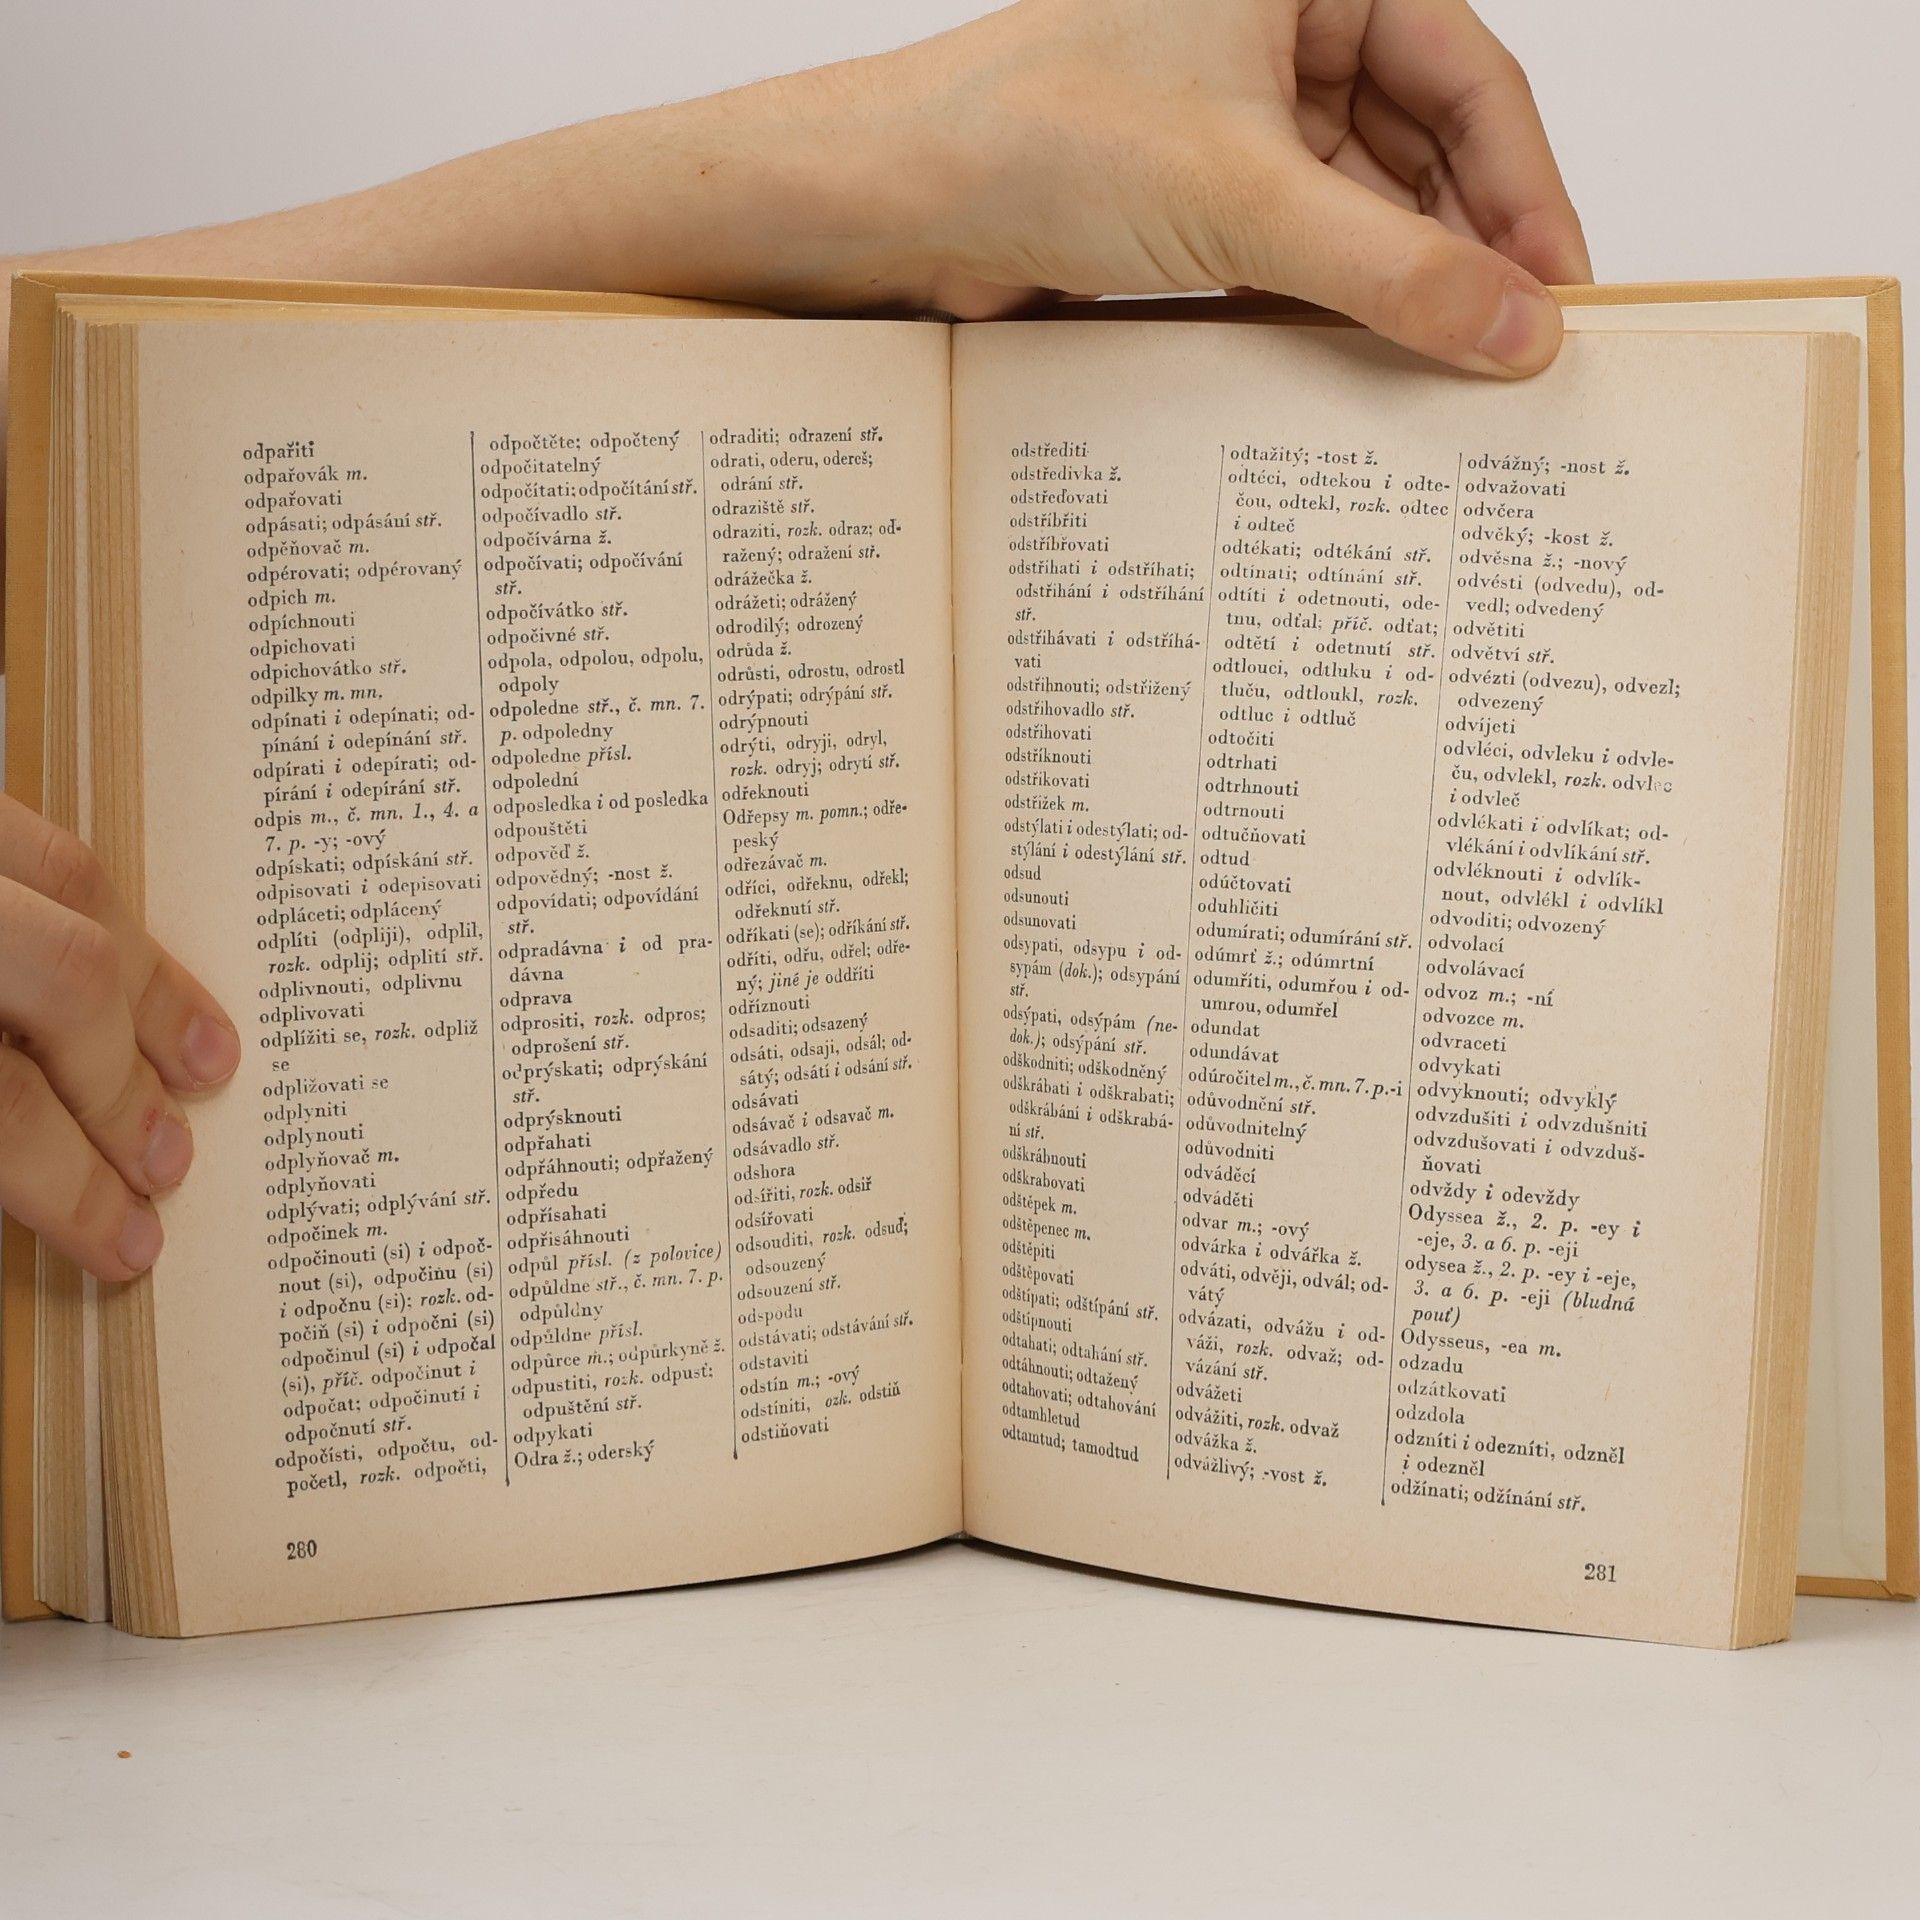 odpařiti
odpařovák m.
odpařovati
odpásati; odpásání stř.
odpěňovač m.
odpérovati; odpérovaný
odpich m.
odpíchnouti
odpichovati
odpichovátko stř.
odpilky m. mn.
odpínati i odepínati; od-
pínání i odepínání stř.
odpírati i odepírati; od-
pírání i odepírání stř.
odpis m., č. mn. 1., 4. a
7. p. -y; -ový
odpískati; odpískání stř.
odpisovati i odepisovati
odpláceti; odplácený
odplíti (odpliji), odplil,
rozk. odplij; odplití stř.
odplivnouti, odplivnu
odplivovati
odplížiti se, rozk. odpliž
se
odpližovati se
odplyniti
odplynouti
odplyňovač m.
odplyňovati
odplývati; odplývání stř.
odpočinek m.
odpočinouti (si) i odpoč-
nout (si), odpočinu (si)
i odpočnu (si); rozk. od-
počiň (si) i odpočni (si)
odpočinul (si) i odpočal
(si), příč. odpočinut i
odpočat; odpočinutí i
odpočnutí stř.
odpočísti, odpočtu, od-
početl, rozk. odpočti,
odpočtěte; odpočtený
odpočitatelný
odpočítati; odpočítání stř.
odpočívadlo stř.
odpočívárna ž.
odpočívati; odpočívání
stř.
odpočívátko stř.
odpočivné stř.
odpola, odpolou, odpolu,
odpoly
odpoledne stř., č. mn. 7.
p. odpoledny
odpoledne přísl.
odpolední
odposledka i od posledka
odpouštěti
odpověď ž.
odpovědný; -nost ž.
odpovídati; odpovídání
stř.
odpradávna i od pra-
dávna
odprava
odprositi, rozk. odpros;
odprošení stř.
odprýskati; odprýskání
stř.
odprýsknouti
odpřahati
odpřáhnouti; odpřažený
odpředu
odpřísahati
odpřisáhnouti
odpůl přísl. (z polovice)
odpůldne stř., č. mn. 7. p.
odpůldny
odpůldne přísl.
odpůrce m.; odpůrkyně ž.
odpustiti, rozk. odpusť;
odpuštění stř.
odpykati
Odra ž.; oderský
odraditi; odrazení stř.
odrati, oderu, odereš;
odrání stř.
odraziště stř.
odraziti, rozk. odraz; od-
ražený; odražení stř.
odrážečka ž.
odrážeti; odrážený
odrodilý; odrozený
odrůda ž.
odrůsti, odrostu, odrostl
odrýpati; odrýpání stř.
odrýpnouti
odrýti, odryji, odryl,
rozk. odryj; odrytí stř.
odřeknouti
Odřepsy m. pomn.; odře-
peský
odřezávač m.
odříci, odřeknu, odřekl;
odřeknutí stř.
odříkati (se); odříkání stř.
odříti, odřu, odřel; odře-
ný; jiné je oddříti
odříznouti
odsaditi; odsazený
odsáti, odsaji, odsál; od-
sátý; odsátí i odsání stř.
odsávati
odsávač i odsavač m.
odsávadlo stř.
odshora
odsířiti, rozk. odsiř
odsířovati
odsouditi, rozk. odsuď;
odsouzený
odsouzení stř.
odspodu
odstávati; odstávání stř.
odstaviti
odstín m.; -ový
odstíniti, ozk. odstiň
odstiňovati
280
odstřediti
odstředivka ž.
odstřeďovati
odstříbřiti
odstříbřovati
odstřihati i odstříhati;
odstřihání i odstříhání
stř.
odstřihávati i odstříhá-
vati
odstřihnouti; odstřižený
odstřihovadlo stř.
odstřihovati
odstříknouti
odstřikovati
odstřižek m.
odstýlati i odestýlati; od-
stýlání i odestýlání stř.
odsud
odsunouti
odsunovati
odsypati, odsypu i od-
sypám (dok.); odsypání
stř.
odsýpati, odsýpám (ne-
dok.); odsýpání stř.
odškodniti; odškodněný
odškrábati i odškrabati;
odškrábání i odškrabá-
ní stř.
odškrábnouti
odškrabovati
odštěpek m.
odštěpenec m.
odštěpiti
odštěpovati
odštípati; odštípání stř.
odštípnouti
odtahati; odtahání stř.
odtáhnouti; odtažený
odtahovati; odtahování
odtamhletud
odtamtud; tamodtud
odtažitý; -tost ž.
odtéci, odtekou i odte-
čou, odtekl, rozk. odtec
i odteč
odtékati; odtékání stř.
odtínati; odtínání stř.
odtíti i odetnouti, ode-
tnu, odťal; příč. odťat;
odtětí i odetnutí stř.
odtlouci, odtluku i od-
tluču, odtloukl, rozk.
odtluc i odtluč
odtočiti
odtrhati
odtrhnouti
odtrnouti
odtučňovati
odtud
odúčtovati
oduhličiti
odumírati; odumírání stř.
odúmrť ž.; odúmrtní
odumříti, odumřou i od-
umrou, odumřel
odundat
odundávat
odúročitel m., č. mn. 7. p. -i
odůvodnění stř.
odůvodnitelný
odůvodniti
odváděcí
odváděti
odvar m.; -ový
odvárka i odvářka ž.
odváti, odvěji, odvál; od-
vátý
odvázati, odvážu i od-
váži, rozk. odvaž; od-
vázání stř.
odvážeti
odvážiti, rozk. odvaž
odvážka ž.
odvážlivý; -vost ž.
odvážný; -nost ž.
odvažovati
odvčera
odvěký; -kost ž.
odvěsna ž.; -nový
odvésti (odvedu), od-
vedl; odvedený
odvětiti
odvětví stř.
odvézti (odvezu), odvezl;
odvezený
odvíjeti
odvléci, odvleku i odvle-
ču, odvlekl, rozk. odvlec
i odvleč
odvlékati i odvlíkat; od-
vlékání i odvlíkání stř.
odvléknouti i odvlík-
nout, odvlékl i odvlíkl
odvoditi; odvozený
odvolací
odvolávací
odvoz m.; -ní
odvozce m.
odvraceti
odvykati
odvyknouti; odvyklý
odvzdušiti i odvzdušniti
odvzdušovati i odvzduš-
ňovati
odvždy i odevždy
Odyssea ž., 2. p. -ey i
-eje, 3. a 6. p. -eji
odysea ž., 2. p. -ey i -eje,
3. a 6. p. -eji (bludná
pouť)
Odysseus, -ea m.
odzadu
odzátkovati
odzdola
odzníti i odezníti, odzněl
i odezněl
odžínati; odžínání stř.
281